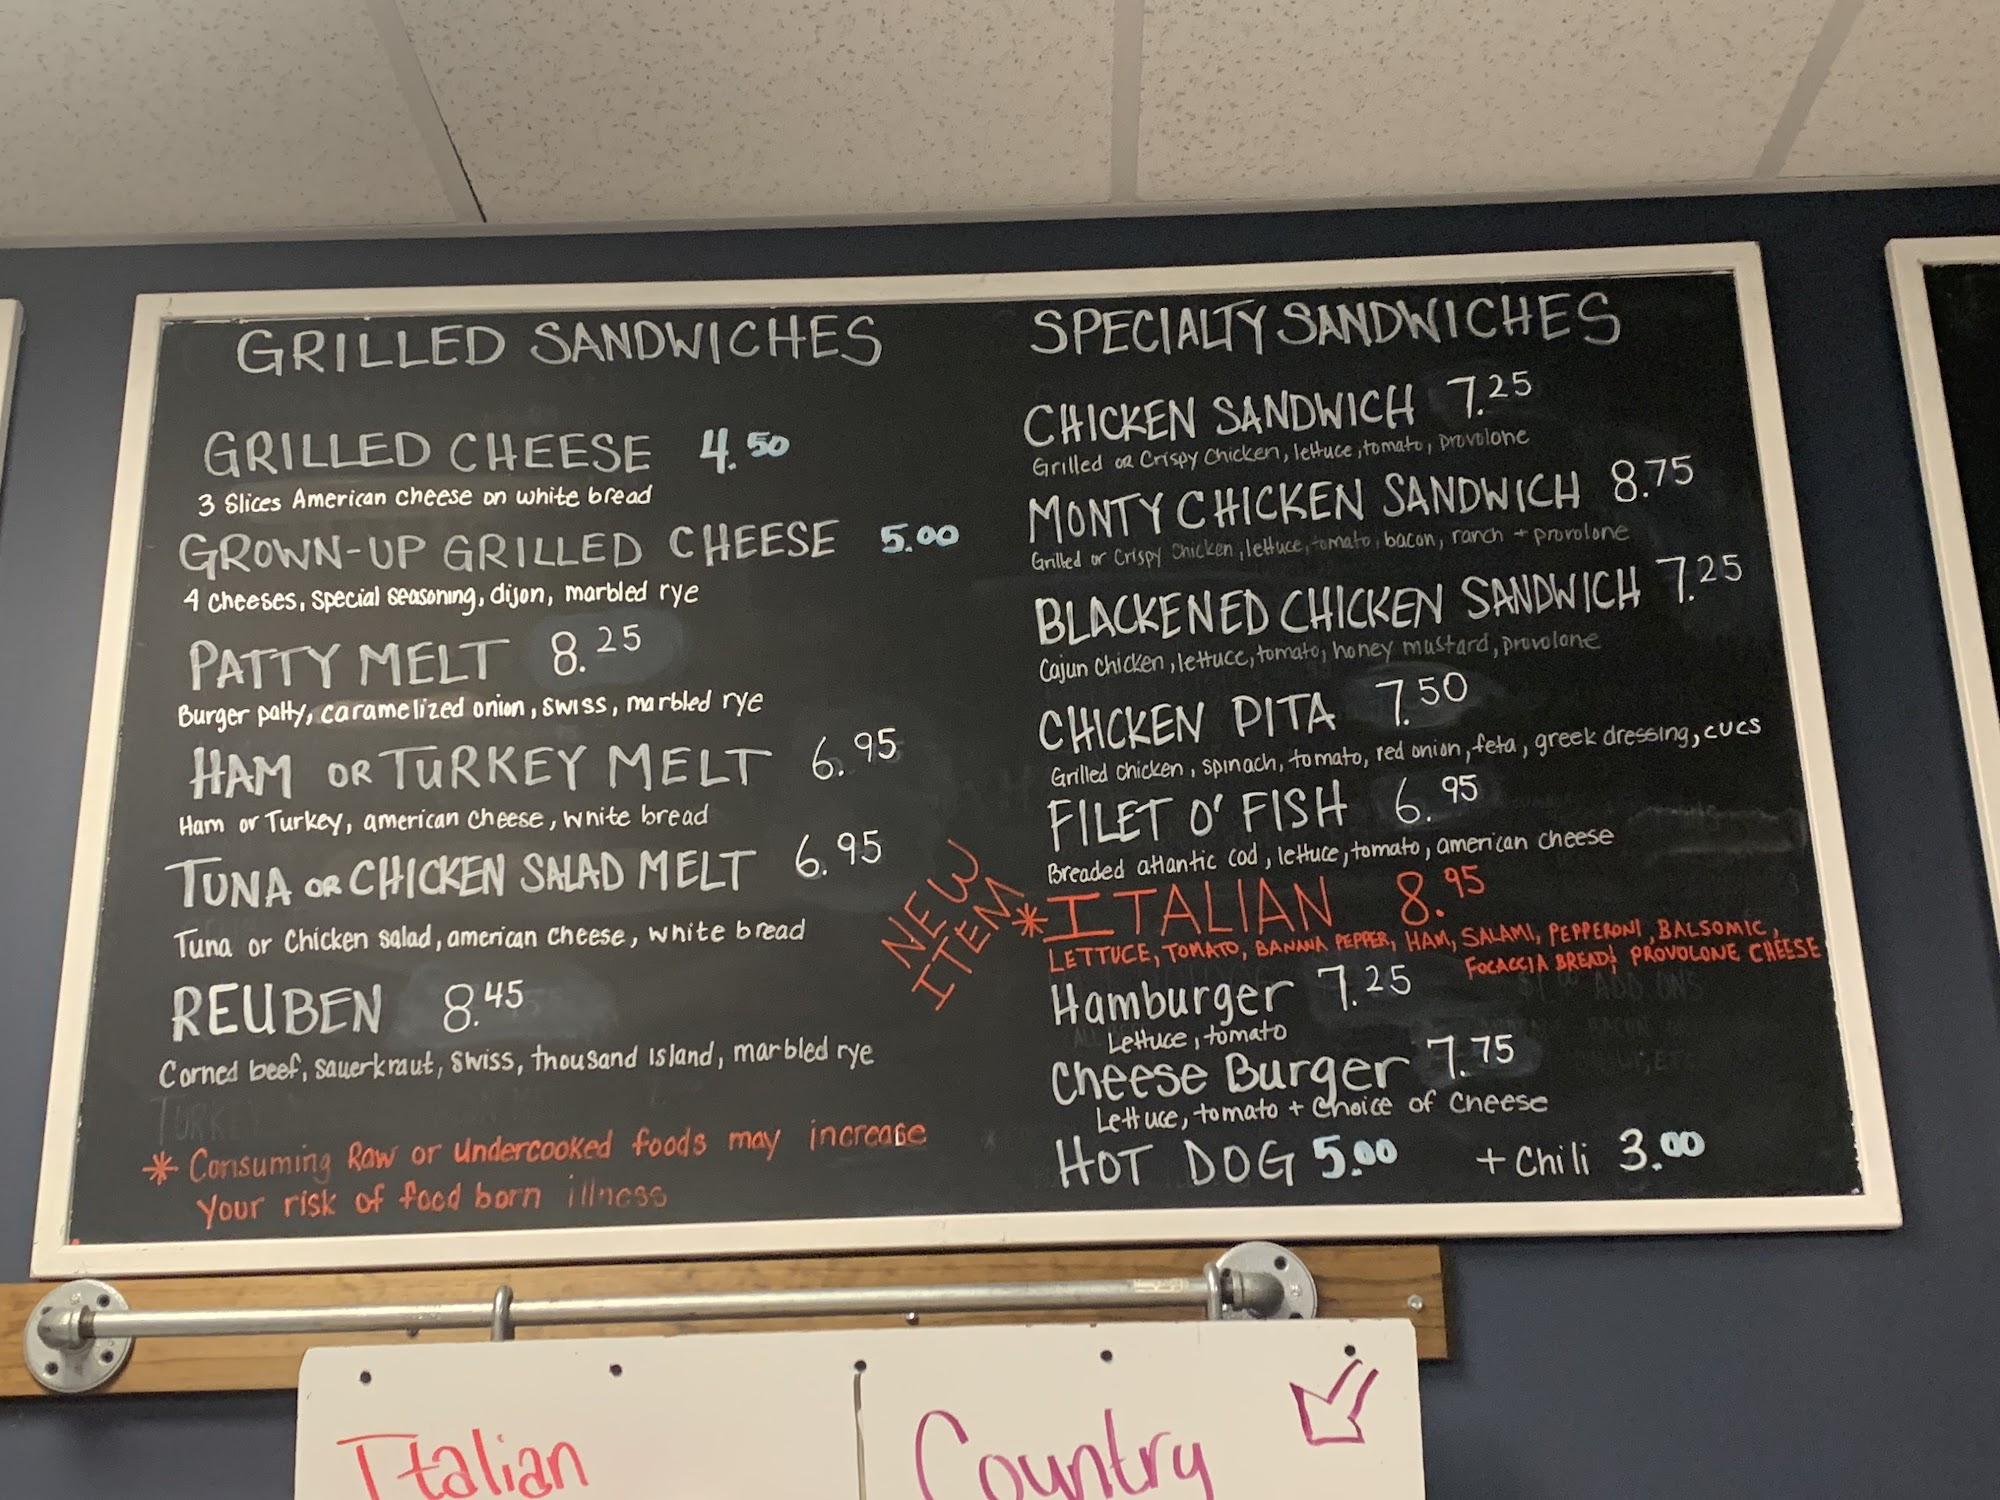 GRILLED SANDWICHES
GRILLED CHEESE 4.50
3 Slices American cheese on white bread
GROWN-UP GRILLED CHEESE 5.00
4 cheeses, special seasoning, dijon, marbled rye
PATTY MELT 8.25
Burger patty, caramelized onion, swiss, marbled rye
HAM OR TURKEY MELT 6.95
Ham or Turkey, american cheese, white bread
TUNA OR CHICKEN SALAD MELT 6.95
Tuna or Chicken salad, american cheese, white bread
REUBEN 8.45
Corned beef, sauerkraut, swiss, thousand island, marbled rye
TURKEY
* Consuming Raw or undercooked foods may increase
your risk of food born illness
SPECIALTY SANDWICHES
CHICKEN SANDWICH 7.25
Grilled or Crispy chicken, lettuce, tomato, provolone
MONTY CHICKEN SANDWICH 8.75
Grilled or Crispy chicken, lettuce, tomato, bacon, ranch + provolone
BLACKENED CHICKEN SANDWICH 7.25
Cajun chicken, lettuce, tomato, honey mustard, provolone
CHICKEN PITA 7.50
Grilled chicken, spinach, tomato, red onion, feta, greek dressing, cucs
FILET O' FISH 6.95
Breaded atlantic cod, lettuce, tomato, american cheese
NEW
ITEM
* ITALIAN 8.95
LETTUCE, TOMATO, BANANA PEPPER, HAM, SALAMI, PEPPERONI, BALSOMIC,
FOCACCIA BREAD & PROVOLONE CHEESE
Hamburger 7.25
Lettuce, tomato
Cheese Burger 7.75
Lettuce, tomato + choice of cheese
HOT DOG 5.00 + Chili 3.00
Italian
Country